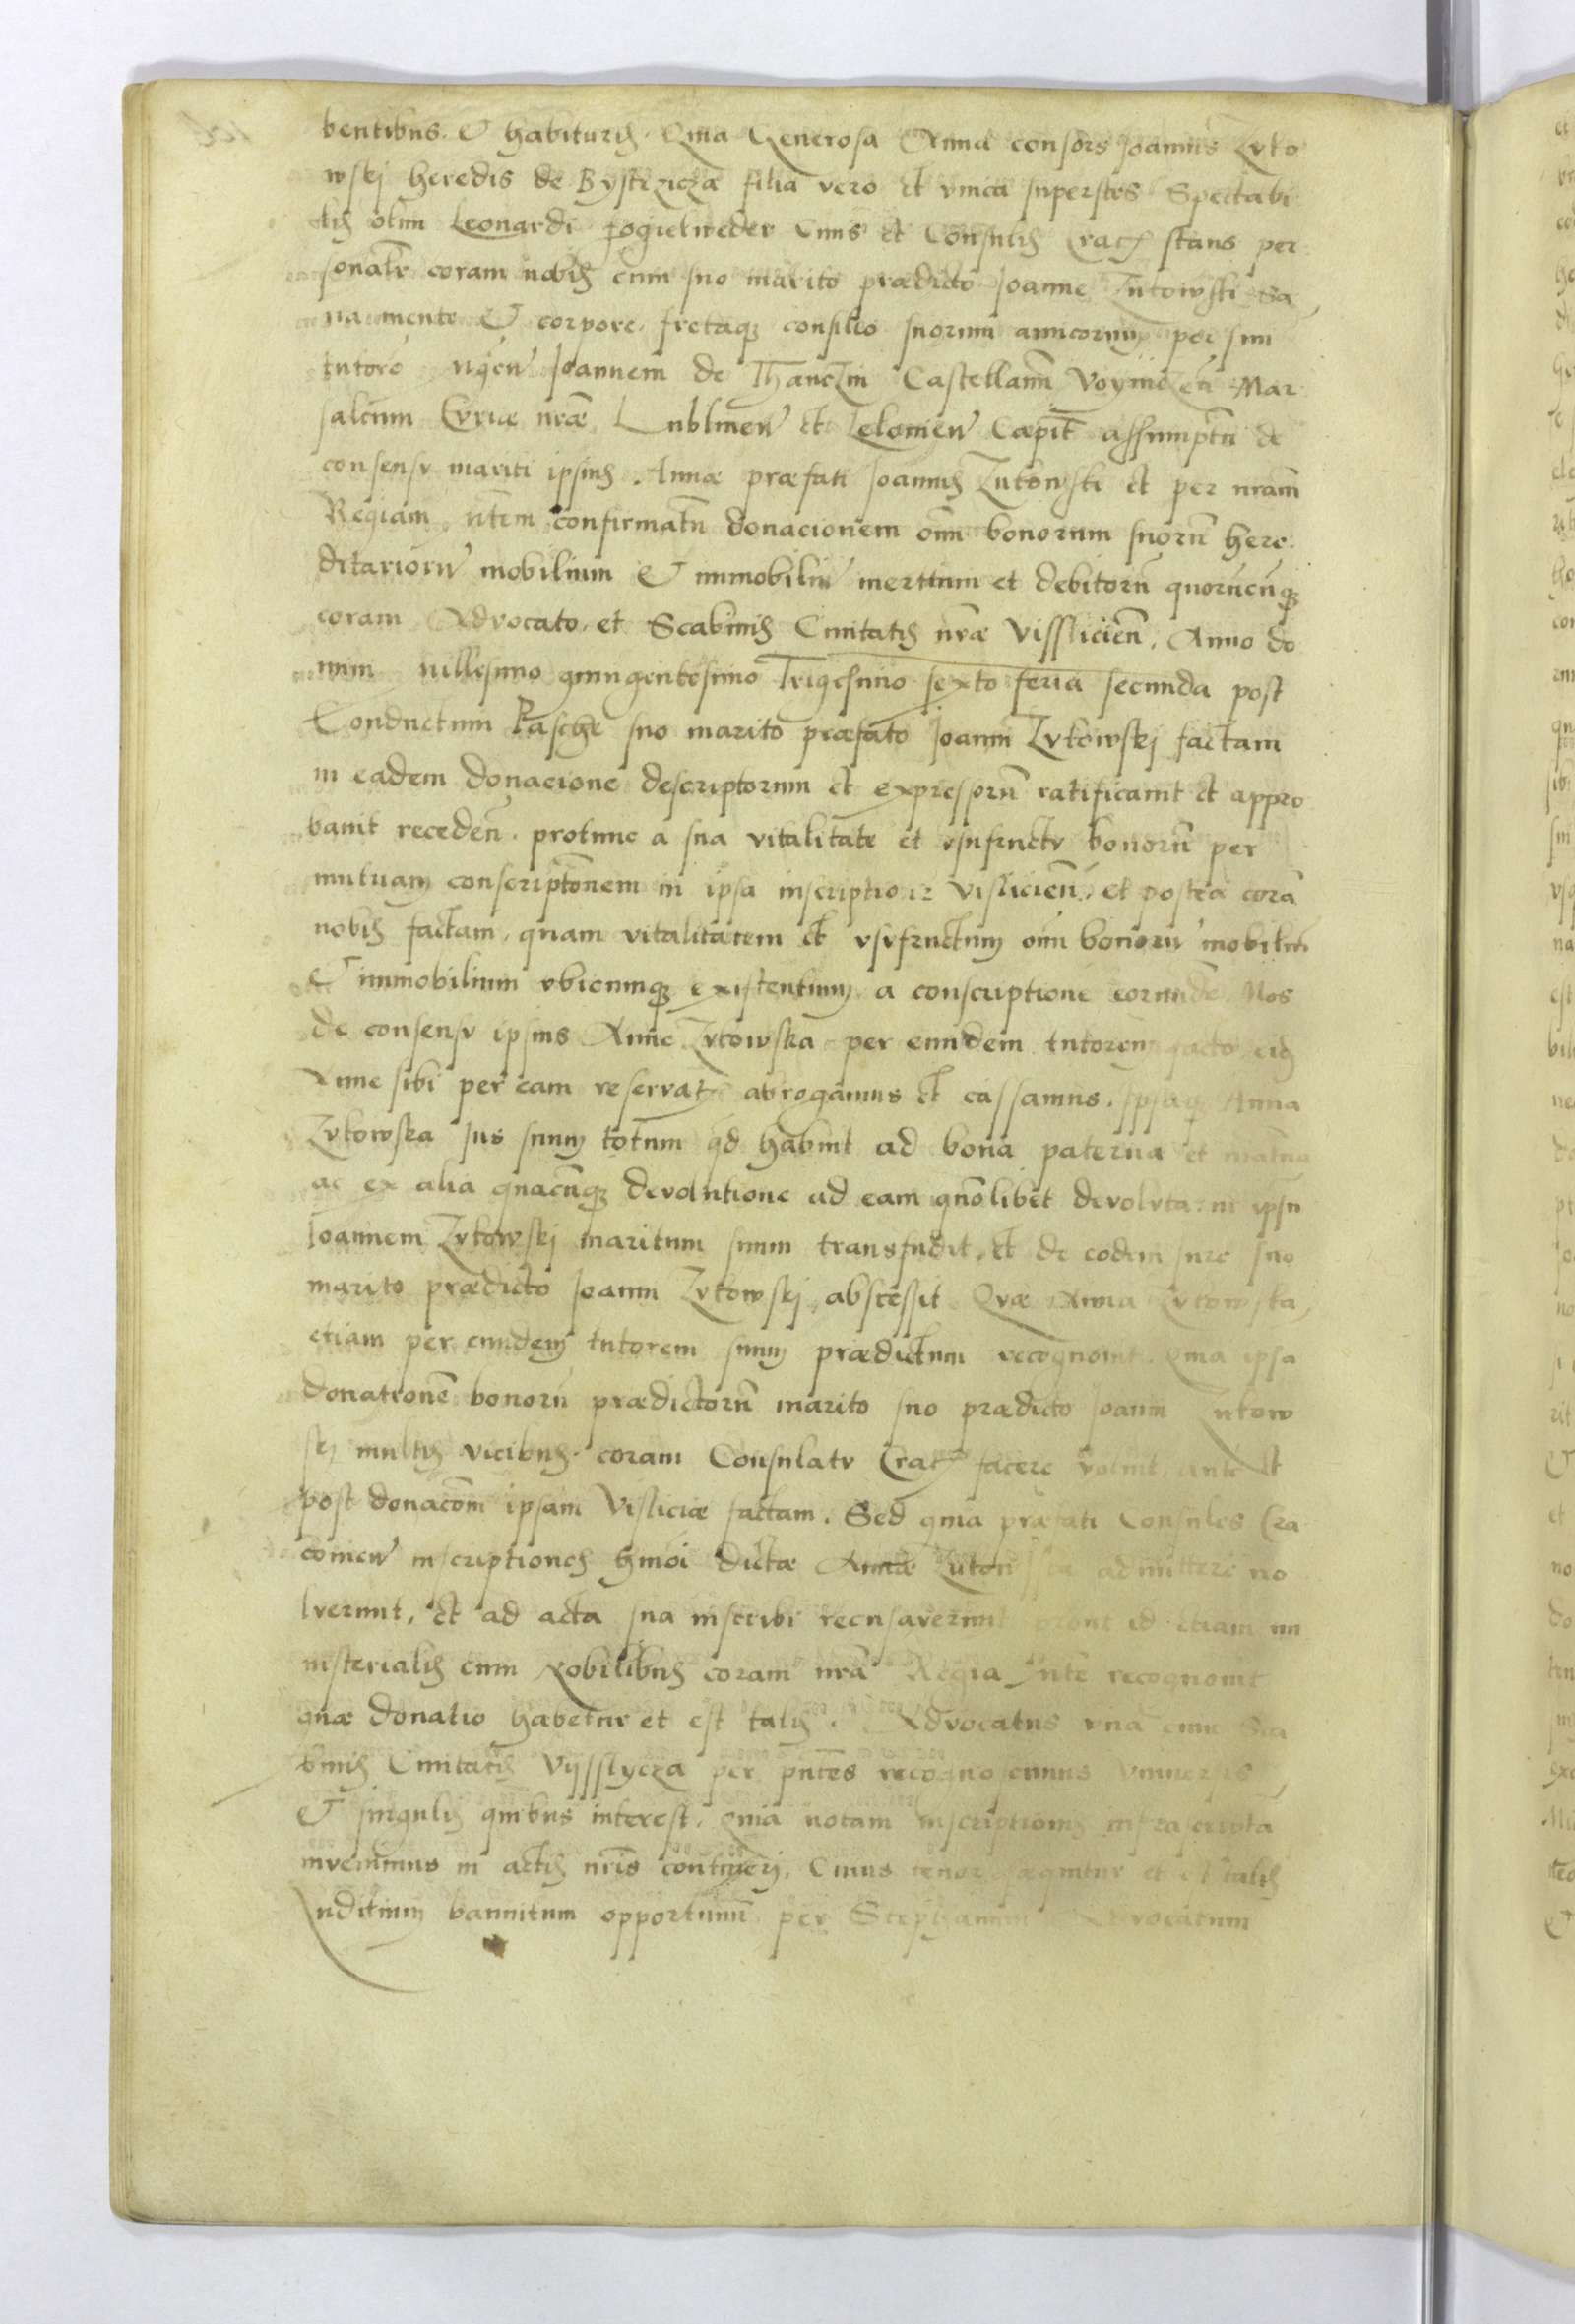 bentibus. Et habituris. Quia Generosa Anna consors Joannis Zuto
wskj heredis de Bystrziczæ filia vero et vnica superstes Spectabi
lis olim Leonardi fogielweder Ciuis et Consulis Crac stans per
sonalr coram nobis cum suo marito prædicto Joanne Zutowski sa
na mente Et corpore. fretaq consilio suorum amicorum per suu
tutore Joannem de Thanczin Castellanu Voyniczen Mar
salcum Curiæ nræ Lublinen et Capit assumptu de
consensu mariti ipsius. Annæ præfati Joannis Zutowski et per nram
Regiam confirmatu donacionem oim bonorum suoru here
ditarioru mobilium Et immobiliu mertium et debitoru quorucuq
coram Advocato et Scabinis Ciuitatis nræ Vissliciens. Anno do
mini millesimo quingentesimo Trigesimo sexto feria secunda post
Conductum Pasche suo marito præfato Joanni Zutowskj factam
in eadem donacione descriptorum et expressoru ratificauit et appro
bauit receden. protunc a sua vitalitate et vsufructu bonoru per
mutuam conscriptionem in ipsa inscriptione Visliciens. et postea cora
nobis factam. quam vitalitatem et vsufructum oim bonoru mobiliu
Et immobilium vbicumq existentium a conscriptione eorunde. Nos
de consensu ipsius Anne Zutowska per eundem tutorem facto eid
Anne sibi per eam reservat abrogamus et cassamus. Ipsaq Anna
Zutowska Jus suum totum qd habuit ad bona paterna et matna
ac ex alia quacunq devolutione ad eam quolibet devoluta. in ipsu
Joannem Zutowskj maritum suum transfudit. et de eodem iure suo
marito prædicto Joanni Zutowskj abscessit. Quæ Anna Zutowska
etiam per eundem tutorem suum prædictum recognouit. Quia ipsa
donatione bonoru prædictoru marito suo prædicto Joanni Zutow
skj multis vicibus. coram Consulatu Crac facere voluit. ante et
post donacom ipsam Visliciæ factam. Sed quia præfati Consules Cra
couien inscriptiones hmoi dictæ Annæ Zutowska admittere no
luerunt. et ad acta sua inscribi recusaverunt pront id etiam mi
nisterialis cum Nobilibus coram nra Regia recognouit
quæ donatio habetur et est talis. Advocatus vna cum Sca
binis Ciuitatis Vijsslycza per pntes recognoscimus vniuersis
Et singulis quibus interest. quia notam inscriptionis infrascripta
invenimus in actis nris contineri. Cuius tenor sæquitur et est talis
Juditium bannitum opportunu per Stephanum Advocatum